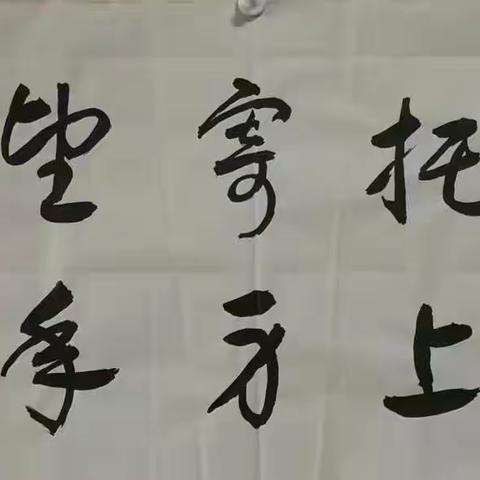 望寄托
年身上